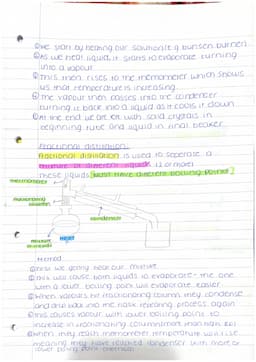 ① we start by heating our solution of a bunsen burner
② As we heat liquid it starts to evaporate turning
into a vapour
③ This then rises to the thermometer which shows
us that temperature is increasing.
④ The vapour then passes into the condenser
turning it back into a liquid as it cools it down
⑤ At the end we are left with solid crystals in
beginning tube and liquid in final beaker
Fractional distillation:
Fractional distillation is used to seperate a
mixture of different liquids (2 or more)
these liquids [must have different boiling points]
thermometer
fractionating column
condenser
mixture
HEAT
Method
① First we gently heat our mixture
② This will cause both liquids to evaporate - the one
with a lower boiling point will evaporate easier
③ When vapours hit fractionating column they condense
and drip back into the flask repeating process again
④ This causes vapour with lower boiling point to
increase in fractionating column more than high b.p
⑤ When they reach thermometer temperature will rise
meaning they have reached condenser with more of
lower boiling point chemical